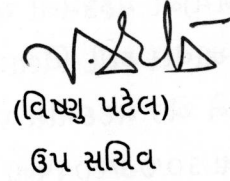 (વિષ્ણુ પટેલ)
ઉપ સચિવ